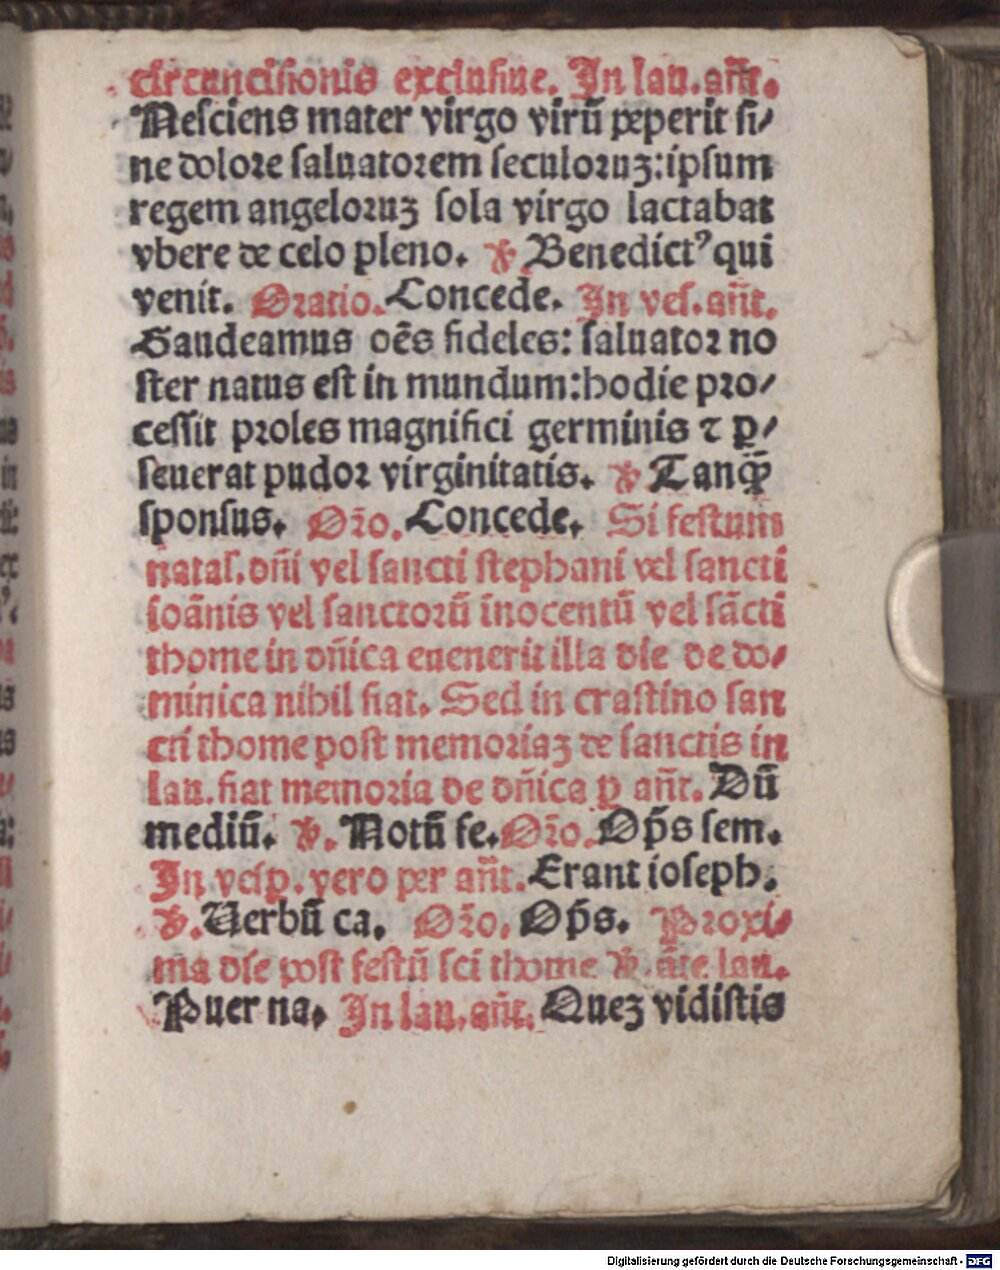 circuncisionis exclusiue. In lau. añt.
Nesciens mater virgo virū peperit si/
ne dolore saluatorem seculoruꝫ: ipsum
regem angeloruꝫ sola virgo lactabat
vbere de celo pleno. ℣. Benedictꝰ qui
venit. Oratio. Concede. In ves. añt.
Gaudeamus oēs fideles: saluator no
ster natus est in mundum: hodie pro/
cessit proles magnifici germinis ⁊ ꝑ/
seuerat pudor virginitatis. ℣ Tanqꝫ̄
sponsus. Or̄o. Concede. Si festum
natal. dn̄i vel sancti stephani vel sancti
ioānis vel sanctorū inocentū vel sācti
thome in dn̄ica euenerit illa die de do/
minica nihil fiat. Sed in crastino san
cti thome post memoriaꝫ de sanctis in
lau. fiat memoria de dn̄ica ꝑ añt. Dū
mediū. ℣. Notū fe. Or̄o. Op̄s sem.
In vesp. vero per añt. Erant ioseph.
℣. Uerbū ca. Or̄o. Op̄s. Proxi/
ma die post festū sci thome ℣. āte lau.
Puer na. In lau. añt. Queꝫ vidistis
Digitalisierung gefördert durch die Deutsche Forschungsgemeinschaft - DFG